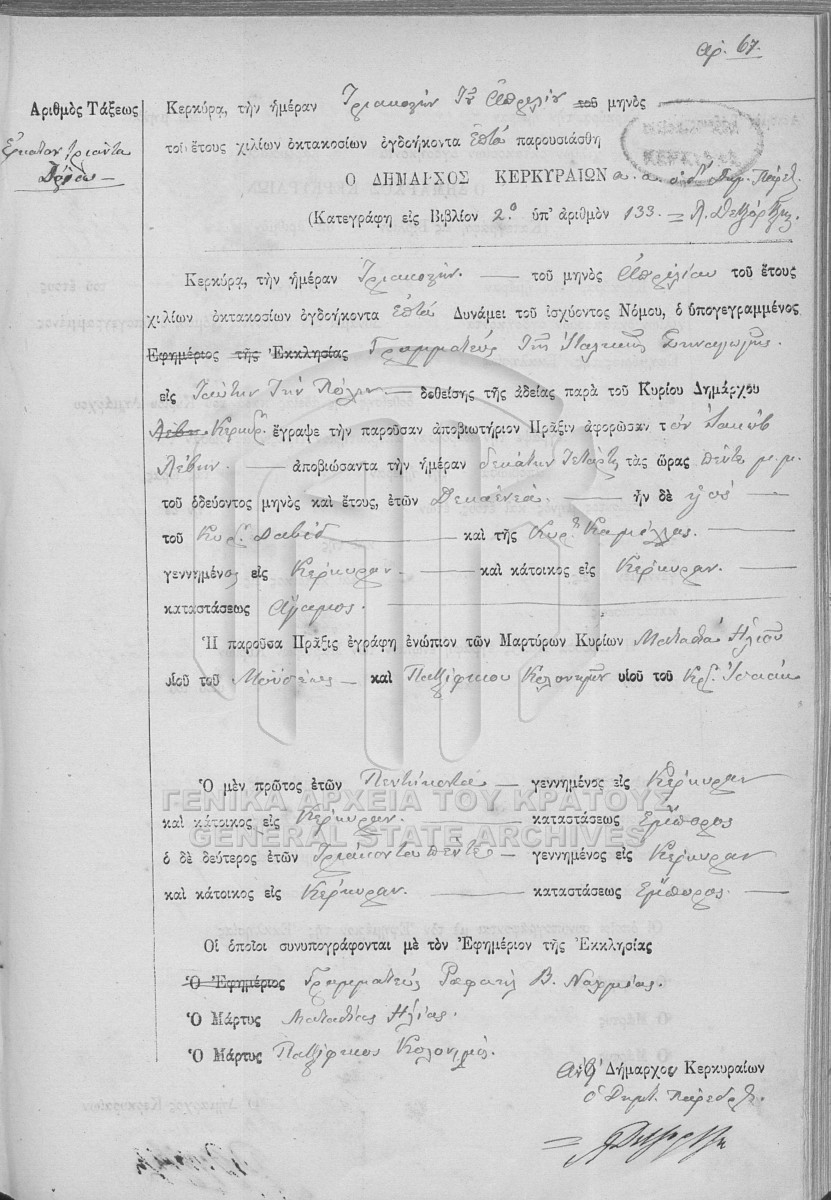 αρ. 67.
Ἀριθμὸς Τάξεως
Εκατον τριαντα
Κερκύρᾳ, τὴν ἡμέραν Τριακοστὴν Απριλίου τοῦ μηνὸς
τοῦ ἔτους χιλίων ὀκτακοσίων ὀγδοήκοντα Επτὰ παρουσιάσθη
Ὁ ΔΗΜΑΡΧΟΣ ΚΕΡΚΥΡΑΙΩΝ α. α.
(Κατεγράφη εἰς Βιβλίον 2.ο ὑπ' ἀριθμὸν 133.
Κερκύρᾳ, τὴν ἡμέραν Τριακοστὴν. τοῦ μηνὸς Απριλίου τοῦ ἔτους
χιλίων ὀκτακοσίων ὀγδοήκοντα Επτὰ Δυνάμει τοῦ ἰσχύοντος Νόμου, ὁ ὑπογεγραμμένος
Ἐφημέριος τῆς Ἐκκλησίας Γραμματεὺς Της Ιταλικῆς Συναγωγῆς.
εἰς Ταύτην Την Πόλιν δοθείσης τῆς ἀδείας παρὰ τοῦ Κυρίου Δημάρχου
Κερκύρ. ἔγραψε τὴν παροῦσαν ἀποβιωτήριον Πρᾶξιν ἀφορῶσαν τὸν Ιακὼβ
Λέβην. ἀποβιώσαντα τὴν ἡμέραν δεκάτην Τετάρτ. τὰς ὥρας πέντε μ.μ.
τοῦ ὁδεύοντος μηνὸς καὶ ἔτους, ἐτῶν Δεκαεννεά. ἦν δὲ υἱὸς
τοῦ Κυρ. Δαβὶδ καὶ τῆς Κυρ. Καμόλλας.
γεννημένος εἰς Κέρκυραν. καὶ κάτοικος εἰς Κέρκυραν.
καταστάσεως αγαμος.
Ἡ παροῦσα Πρᾶξις ἐγράφη ἐνώπιον τῶν Μαρτύρων Κυρίων Ματαθία Ηλία
υἱοῦ τοῦ Μοϋσέως καὶ Πατζίφικου Κολονημου υἱοῦ τοῦ Κυρ. Ισαὰκ
Ὁ μὲν πρῶτος ἐτῶν Πεντήκοντα γεννημένος εἰς Κέρκυραν
καὶ κάτοικος εἰς Κέρκυραν. καταστάσεως Εμπορος
ὁ δὲ δεύτερος ἐτῶν Τριάκοντα πέντε γεννημένος εἰς Κέρκυραν
καὶ κάτοικος εἰς Κέρκυραν. καταστάσεως Εμπορος.
Οἱ ὁποῖοι συνυπογράφονται μὲ τὸν Ἐφημέριον τῆς Ἐκκλησίας
Ὁ Ἐφημέριος Γραμματεὺς Ραφαὴλ Β. Ναχμίας.
Ὁ Μάρτυς Ματαθίας Ηλίας.
Ὁ Μάρτυς Πατζίφικος Κολονημος
Ὁ Δήμαρχος Κερκυραίων
ὁ Δημτ. Πάρεδρος.
ΓΕΝΙΚΑ ΑΡΧΕΙΑ ΤΟΥ ΚΡΑΤΟΥΣ
GENERAL STATE ARCHIVES